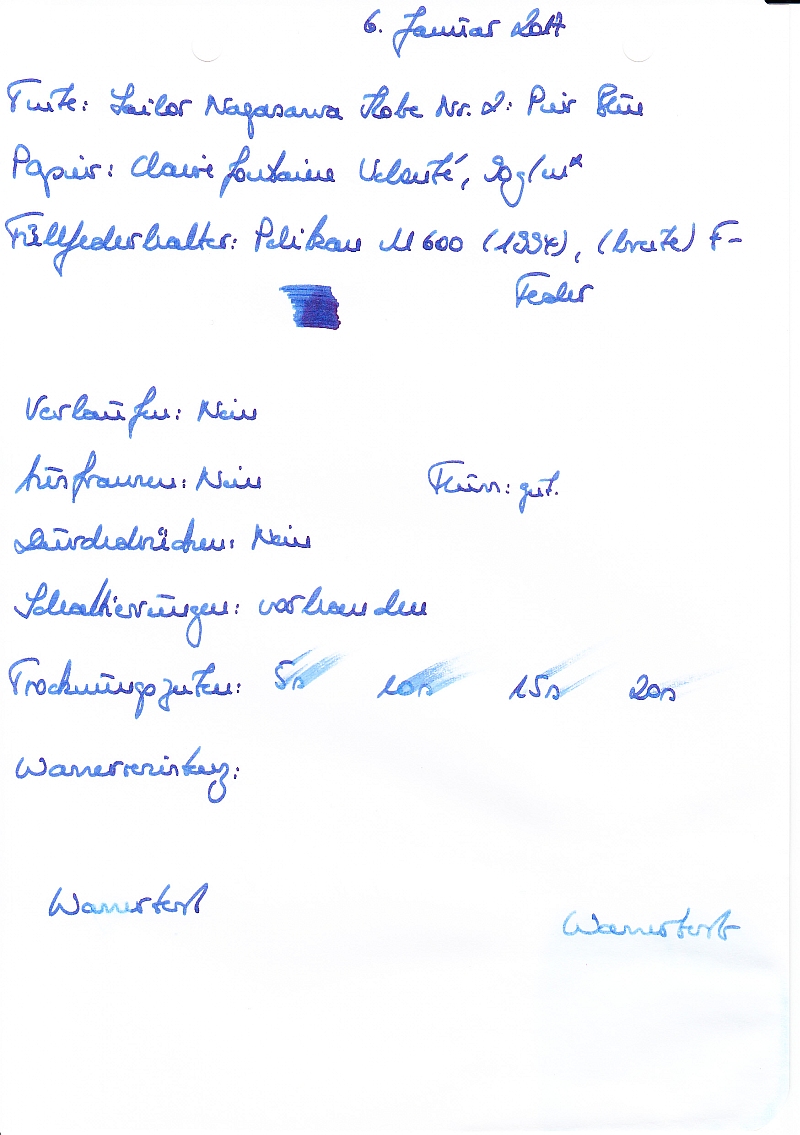 6. Januar 2017
Tinte: Sailor Nagasawa Kobe Nr. 2: Pier Blue
Papier: Clairefontaine Velouté, 90g/m²
Füllfederhalter: Pelikan M 600 (1994), (breite) F-
Feder
Verlaufen: Nein
Ausfransen: Nein Fluss: gut.
Durchdrücken: Nein
Schattierungen: vorhanden
Trocknungszeiten: 5s 10s 15s 20s
Wasserresistenz:
Wassertest Wassertest